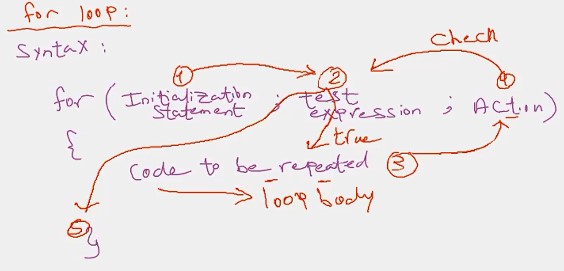 for loop:
Syntax:
check
1 2 4
for (Initialization statement ; test expression ; Action)
{ true
Code to be repeated 3
loop body
5 }